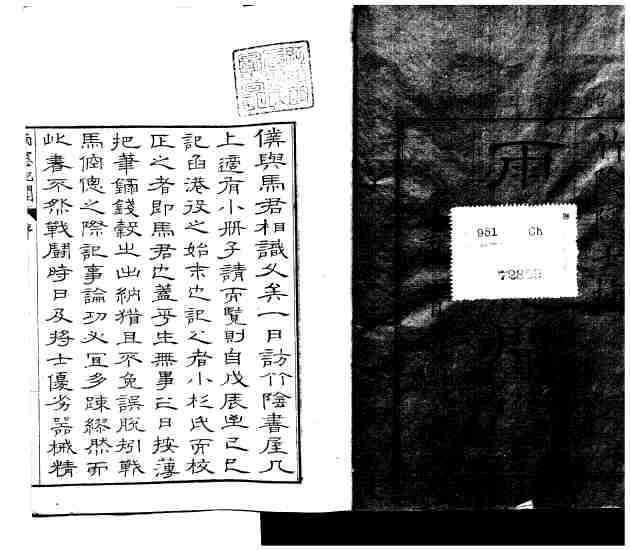 951 Ch
雨
竹
僕與馬君相識久矣一日訪竹陰書屋几
上適有小冊子請而覽則自戊辰至己巳
記函港役之始末也記之者小杉氏而校
正之者即馬君也蓋平生無事之日按薄
把筆錙錢穀之出納猶且不免誤脫矧戰
馬倥傯之際記事論功必宜多踈繆然而
此書不然戰鬪時日及將士優劣器械精